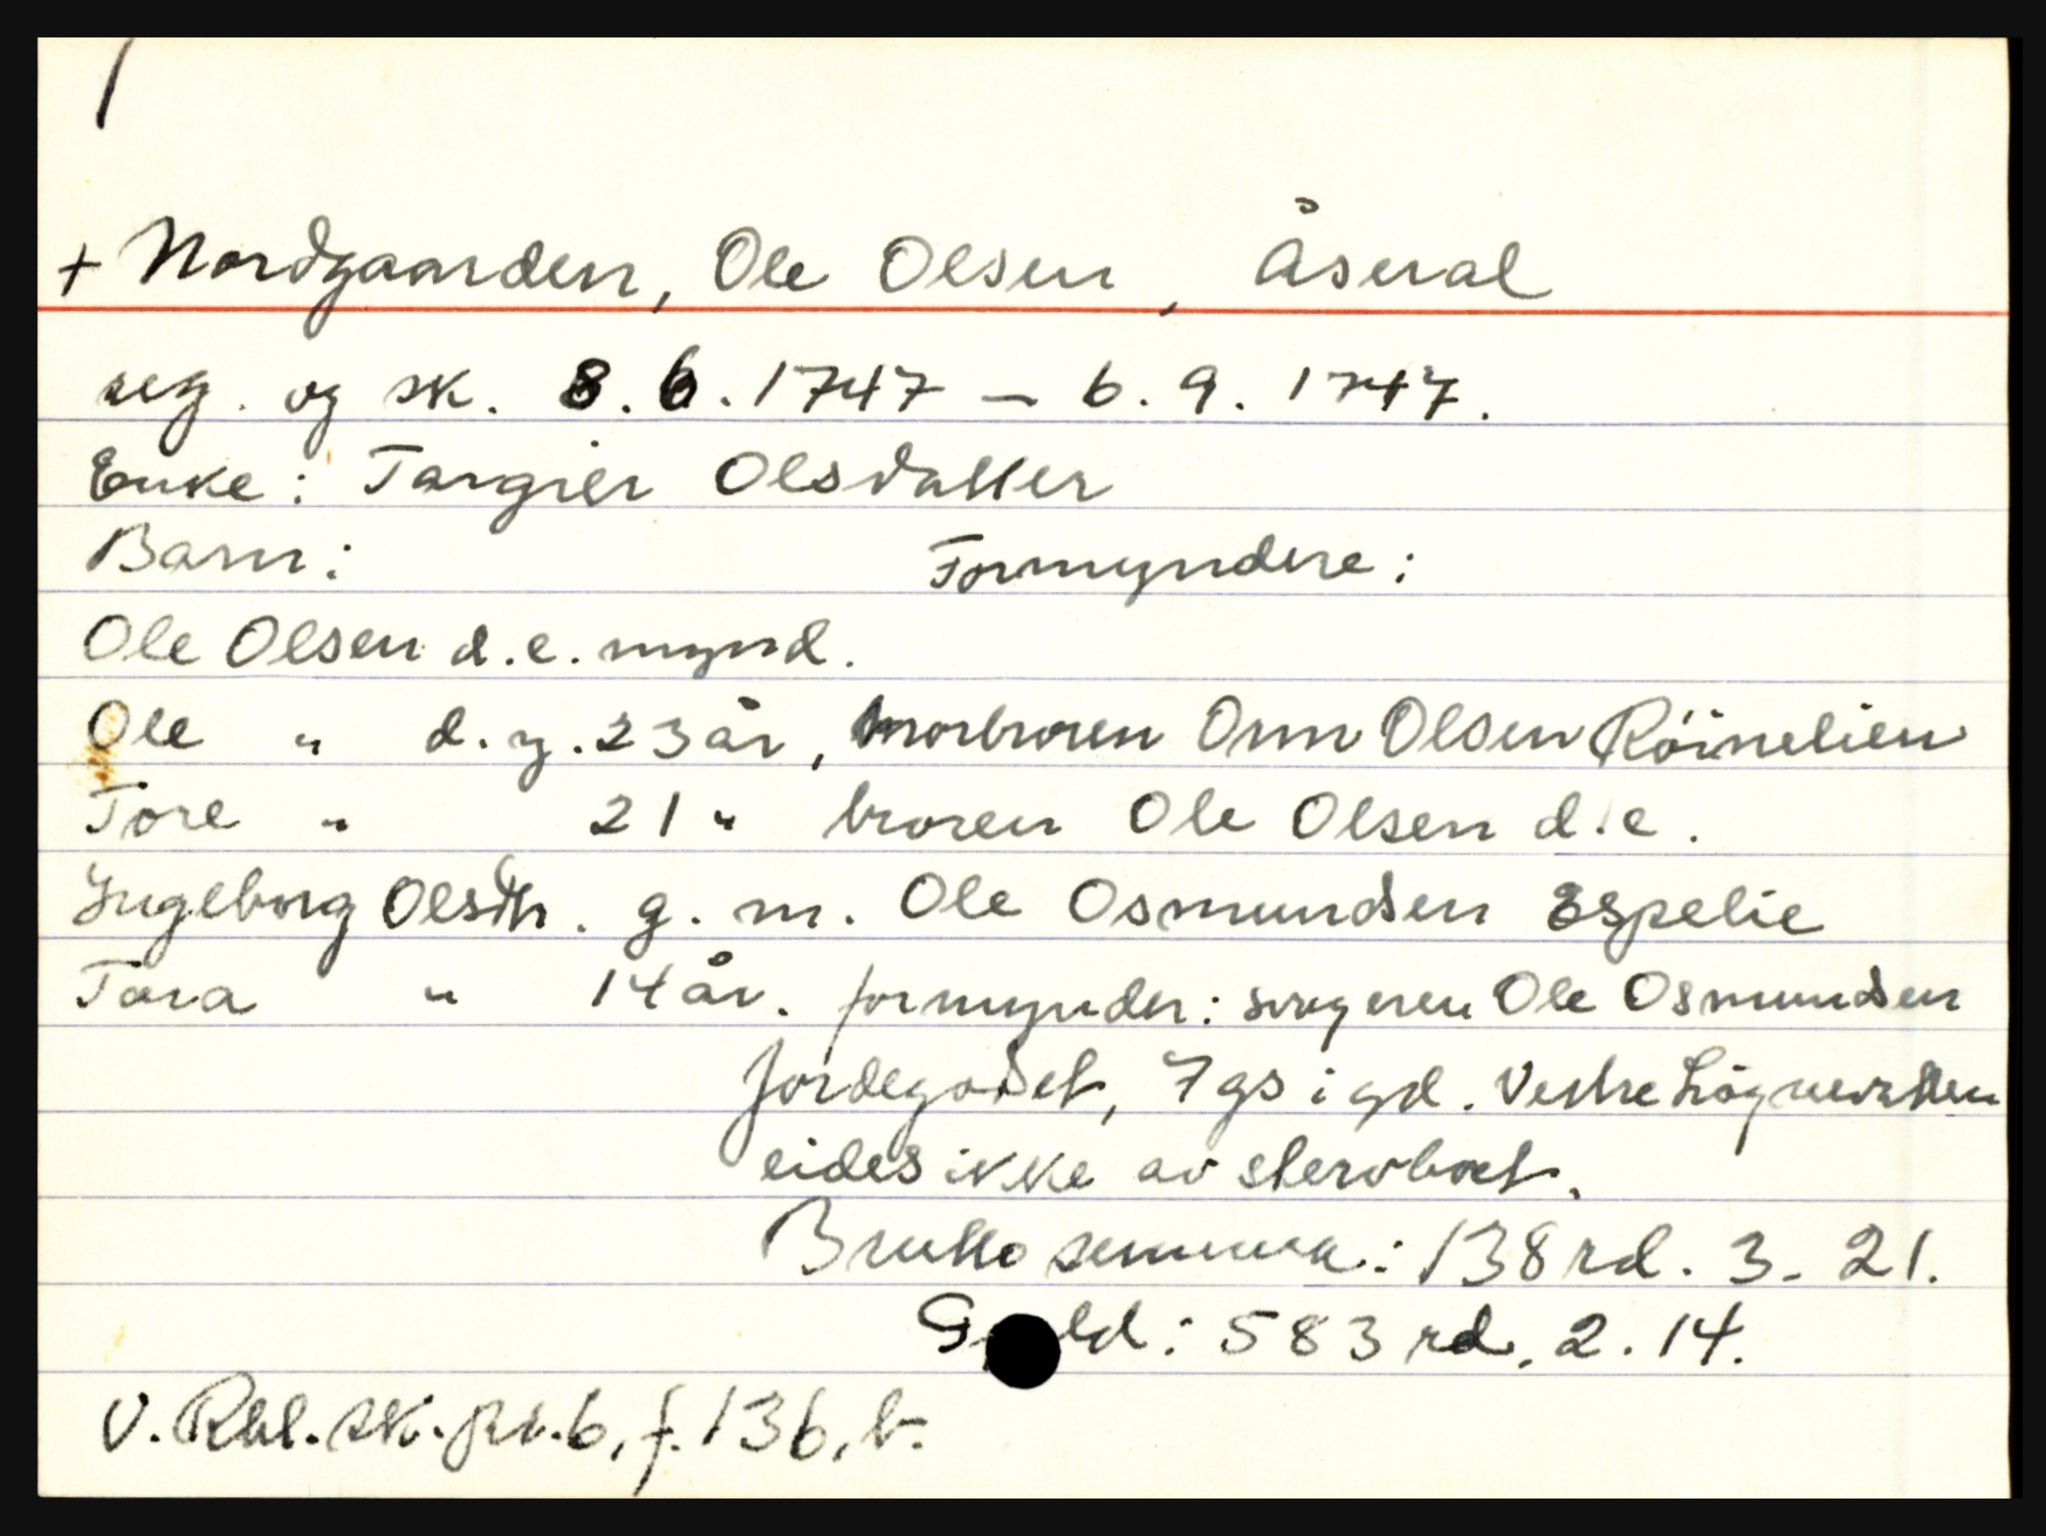 + Nordgaarden, Ole Olsen, Åseral
reg. og sk. 8.6.1747 - 6.9.1747.
Enke: Targier Olsdatter
Barn: Formyndere:
Ole Olsen d.e. mynd.
Ole " d.y. 23 år, morbroren Onn Olsen Röinelien
Tore " 21 " broren Ole Olsen d.e.
Ingeborg Olsdtr. g. m. Ole Osmundsen Espelie
Tara " 14 år. formynder: svogeren Ole Osmundsen
Jordegodset, 7 gs i gd. Vestre
eides ikke av stervboet.
Brutto summa: 138 rd. 3. 21.
Gjeld: 583 rd. 2. 14.
V. Rbl. sk. pr. 6, f. 136, b.